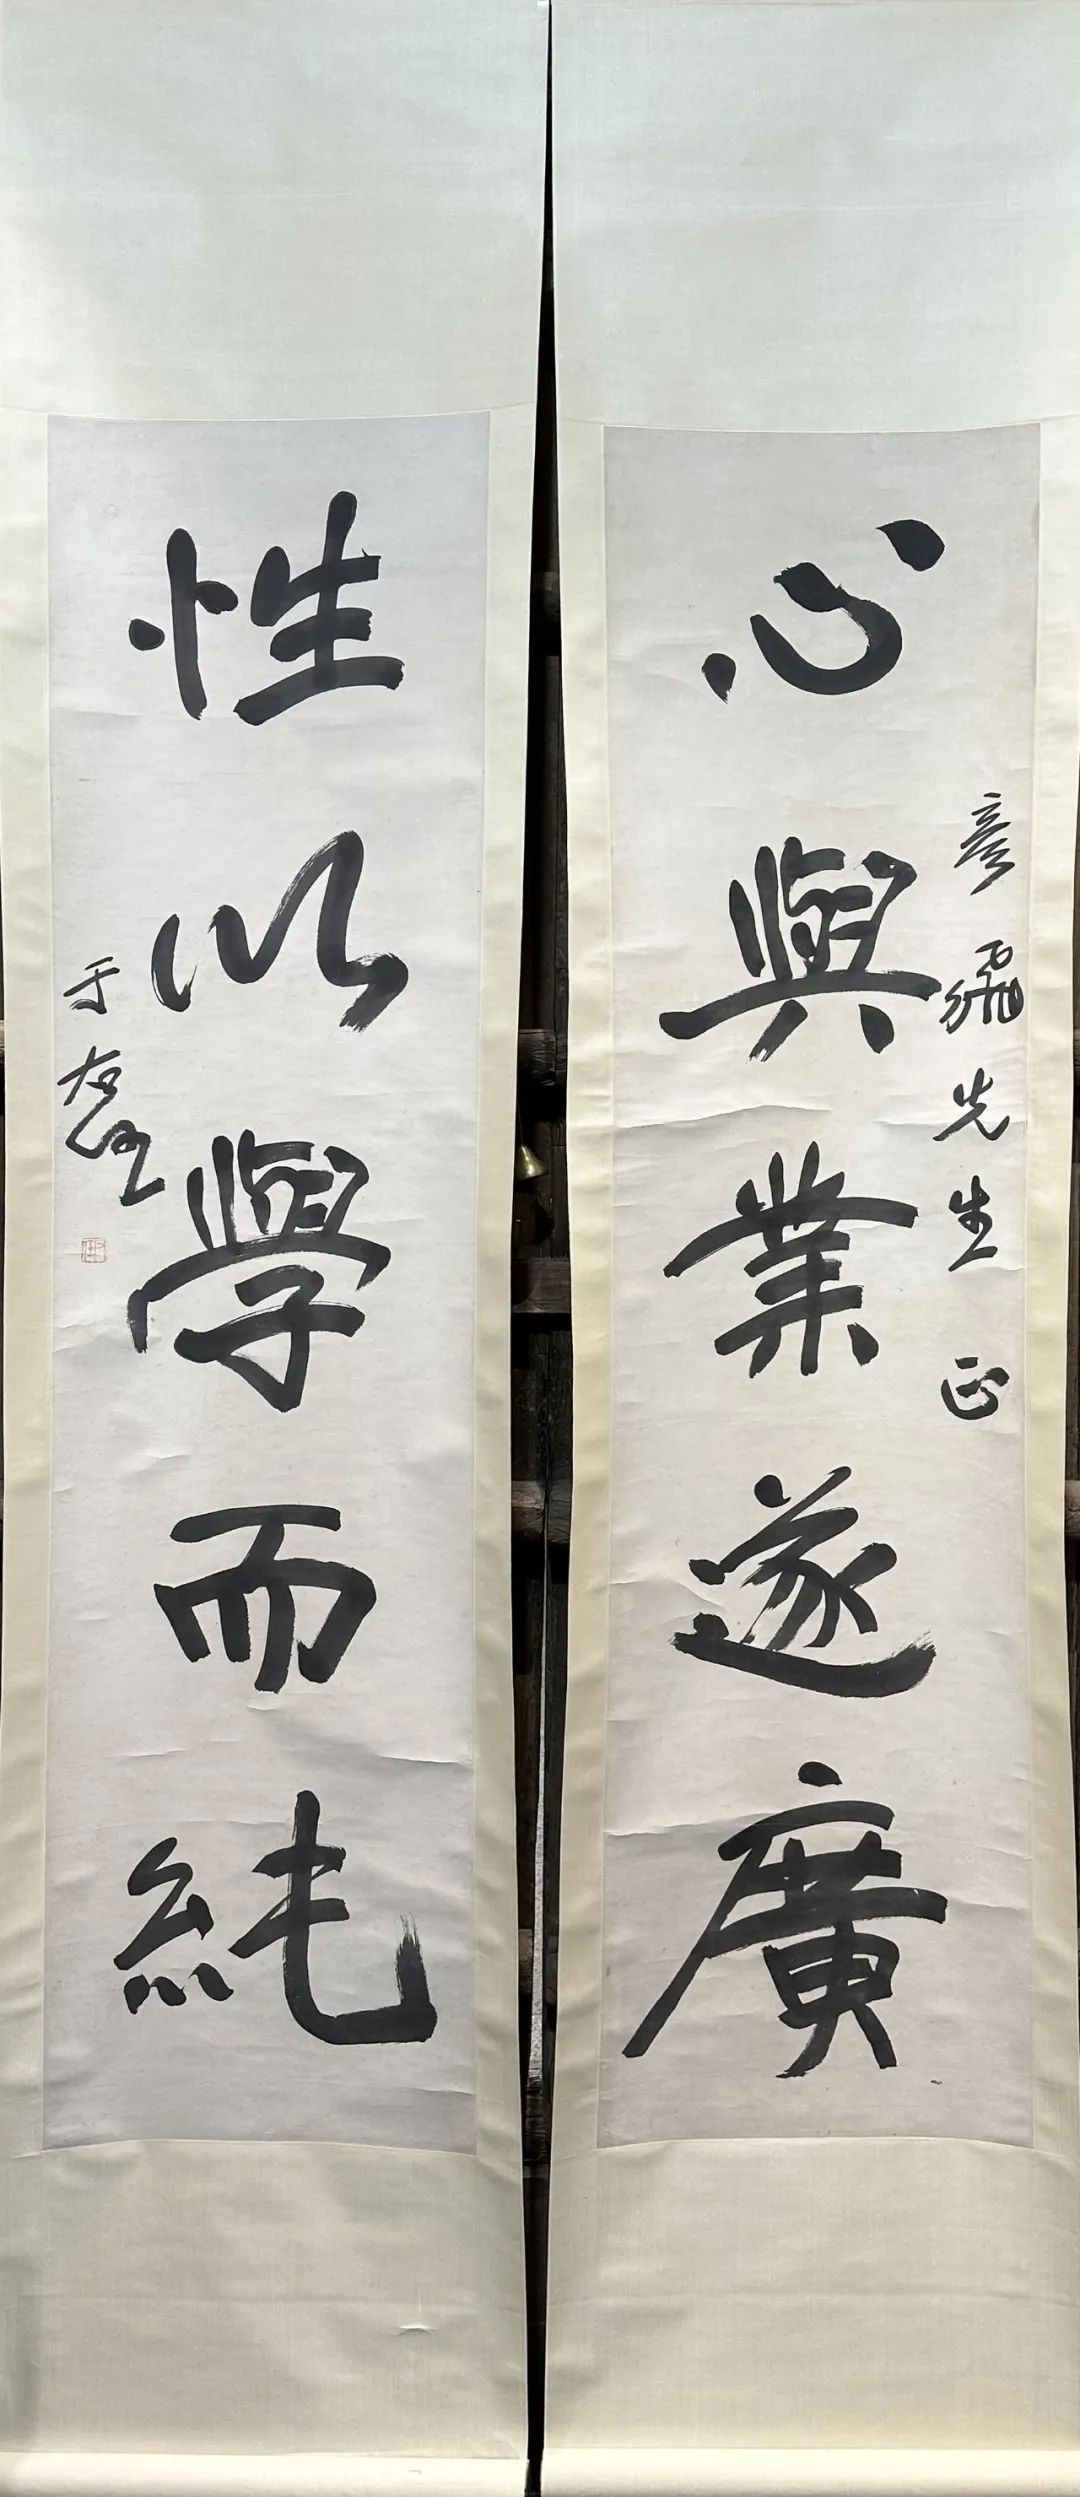 心與業遂廣
彥飛先生正
性以學而純
于右任